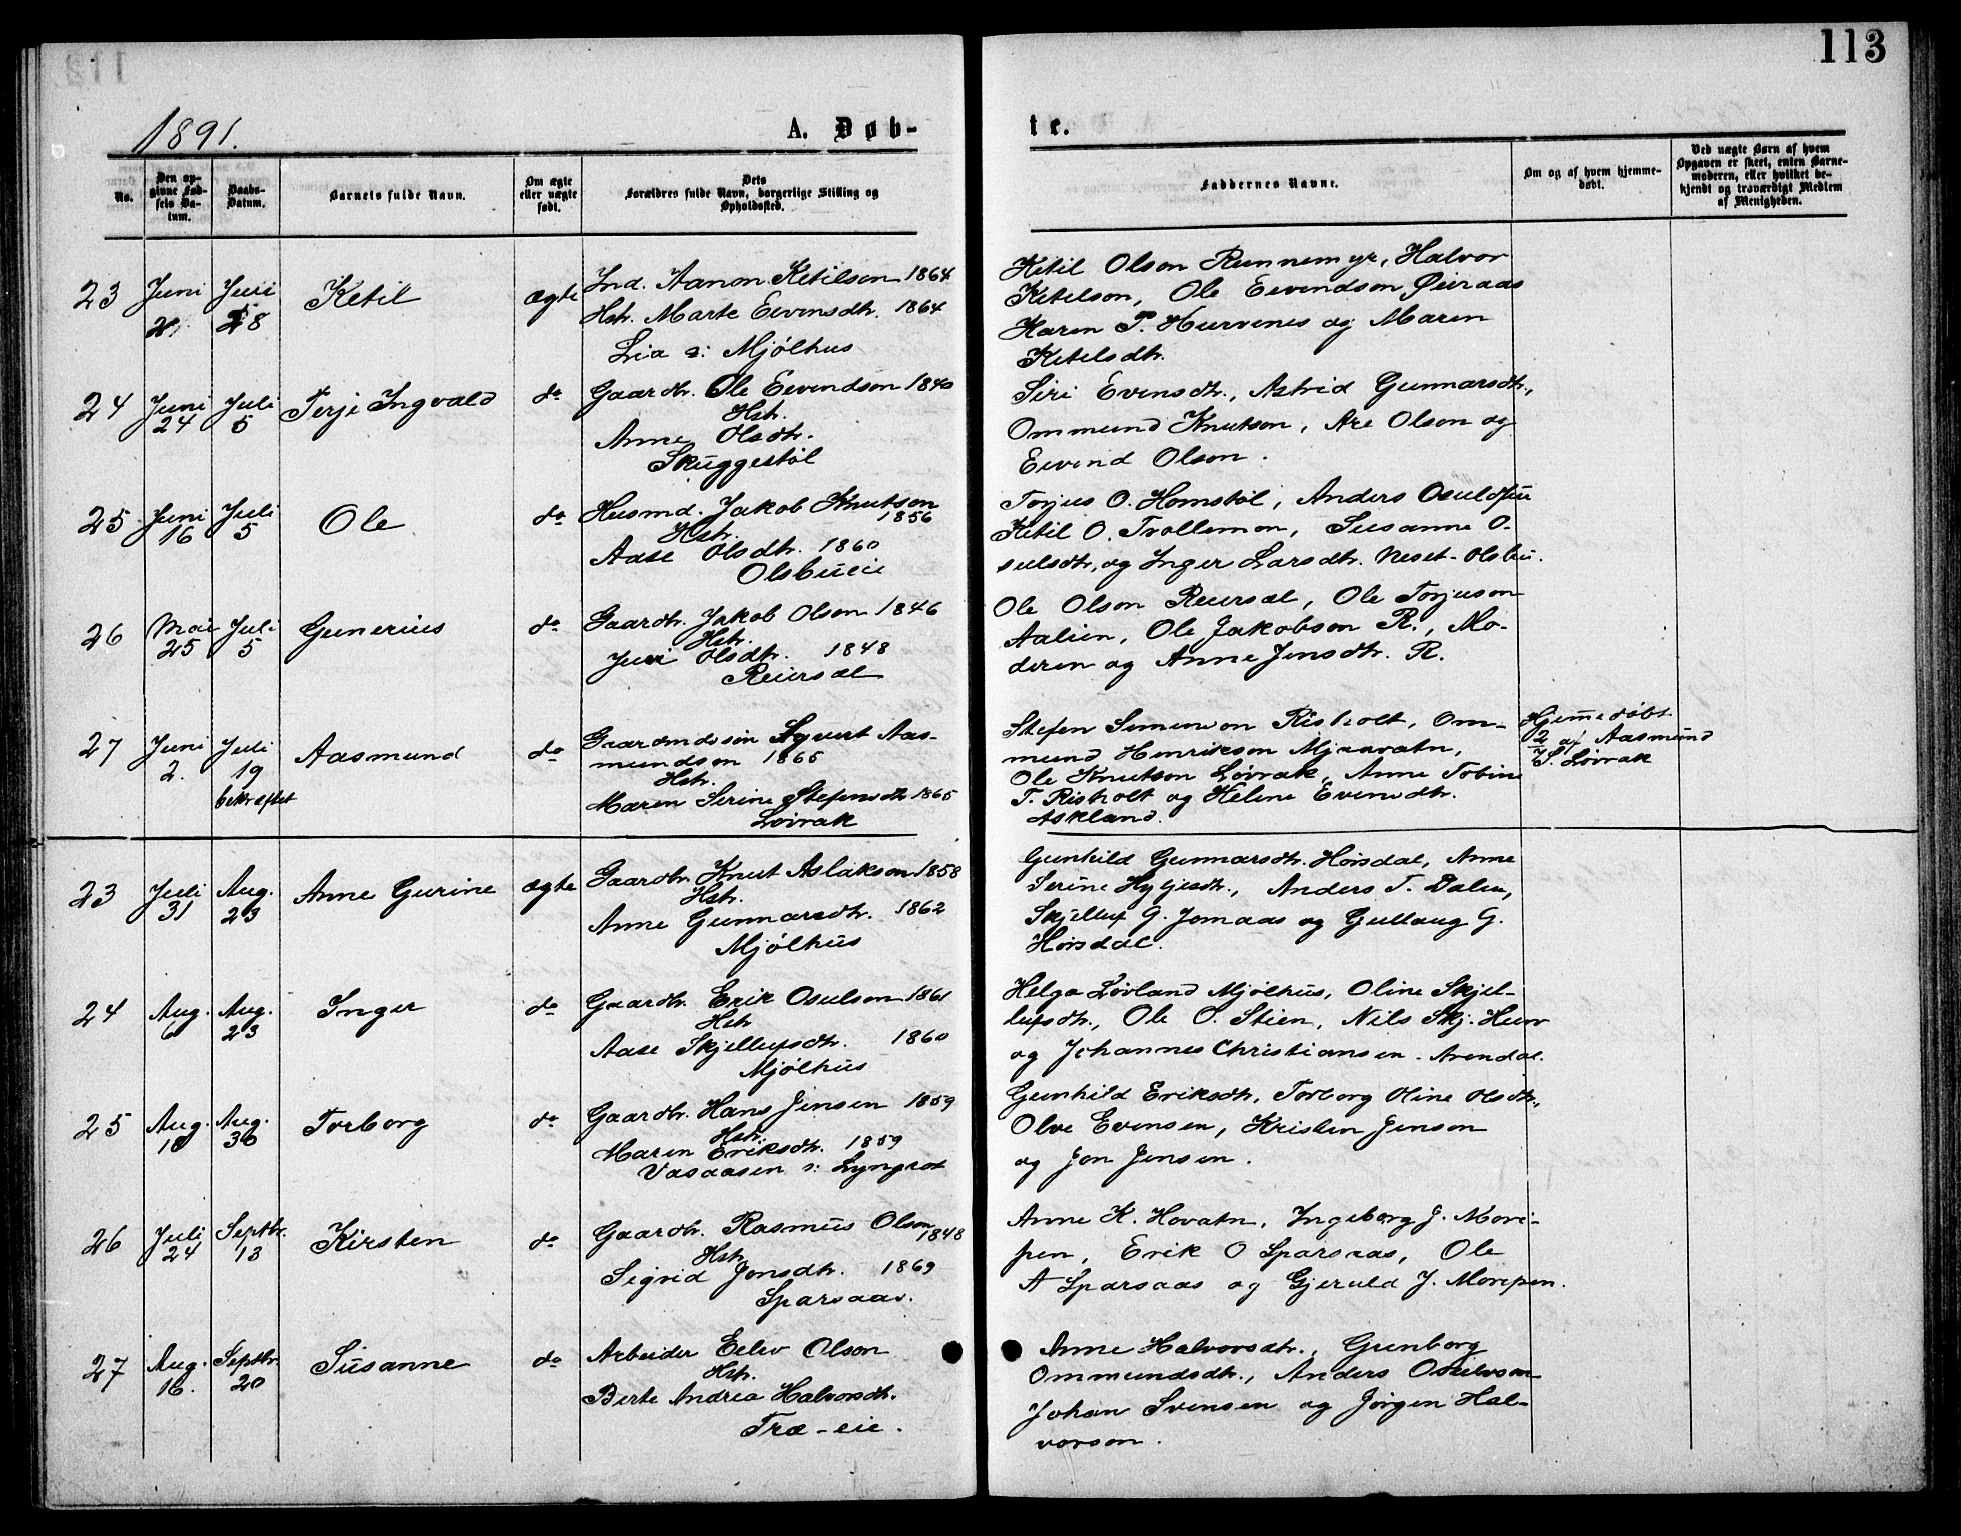 113
1891.
A. Døb-
te.
No.
Den op-
givne Fød-
sels Da-
tum.
Daabs-
Datum.
Barnets fulde Navn.
Om ægte
eller uægte
født.
Dets
Forældres fulde Navn, borgerlige Stilling og
Opholdssted.
Faddernes Navne.
Om og af hvem hjemme-
døbt.
Ved uægte Børn af hvem
Opgaven er skeet, enten Barne-
moderen, eller hvilket be-
kjendt og troværdigt Medlem
af Menigheden.
23
Juni
Juni
28
Ketil
ægte
Ind. Aanon Ketilson 1864
Hst. Marte Eevensdtr. 1864
Lia s: Mjølhus
Ketil Olson Runnemyr, Halvor
Ketelson, Ole Eevendson
Karen T. Hurvenes og Maren
Ketelsdtr.
24
Juni
24
Juli
5
Terje Ingvald
do
Gaardbr. Ole Eevendson 1840
Hst.
Anne Olsdtr.
Skuggestøl
Siri Evensdtr., Astrid Gunnarsdtr.,
Ommund Knutson, Are Olson og
Eivend Olson.
25
Juni
16
Juli
5
Ole
do
Husmd. Jakob Knutson
1856
Hstr.
Aase Olsdtr. 1860
Olsbueie
Torjus O. Homstøl, Anders
Ketil O. Trollemon, Susanne O-
sulsdtr, og Inger Larsdtr. Neset-Olsbu.
26
Mai
25
Juli
5
Gunerius
do
Gaardbr. Jakob Olson 1846
Hst.
Juri Olsdtr. 1848
Reiersøl
Ole Olson Reiersøl, Ole Torjuson
Aalien, Ole Jakobson R., Mo-
deren og Anne Jensdtr. R.
27
Juni
2.
Juli
19
bekræftet
Aasmund
do
Gaardmdssøn Syvert Aas-
mundson 1865
Hst.
Maren Serine Stefensdtr 1865
Løvrak
Stefen Simenson Risholt, Om-
mund Henrikson Mjaavatn,
Ole Knutson Løvrak, Anne Tobine
T. Risholt og Helene Evensdtr.
Askland.
Hjemmedøbt
2/7 af Aasmund
S. Løvrak
23
Juli
31
Aug.
23
Anne Gurine
ægte
Gaardbr. Knut Aslakson 1858
Hst.
Anne Gunnarsdtr. 1862
Mjølhus
Gunhild Gunnarsdtr. Hørsdal, Anne
Serine Hyljesdtr., Anders T. Dalen,
Skjelluf G. Jomaas og Gullaug G.
Hørsdal.
24
Aug.
6
Aug.
23
Inger
do
Gaardbr. Erik Osulson 1861
Hst
Aase Skjellufsdtr. 1860
Mjølhus
Helga Løvland Mjølhus, Oline Skjel-
lufsdtr., Ole O. Stien, Nils Skj. Hurv
og Johannes Christiansen. Arendal.
25
Aug.
10
Aug.
30
Torborg
do
Gaardbr. Hans Jensen 1859
Hst.
Maren Eriksdtr. 1859
Vasaasen s: Lyngrot
Gunhild Eriksdtr, Torborg Oline Olsdtr.,
Olve Evensen, Kristen Jenson
og Jon Jensen.
26
Juli
24
Septbr.
13
Kirsten
do
Gaardbr. Rasmus Olson
1848
Hst.
Sigrid Jonsdtr. 1869
Sparsaas.
Anne K. Hovatn, Ingeborg J. More-
pen, Erik O Sparsaas, Ole
A Sparsaas og Gjeruld J. Morepen.
27
Aug.
16.
Septbr.
20
Susanne
do
Arbeider Eelev Olson
Hst.
Berte Andrea Halvorsdtr.
Træ-eie.
Anne Halvorsdtr., Gunborg
Ommundsdtr., Anders Osulvson
Johan Svensen og Jørgen Hal-
vorson.